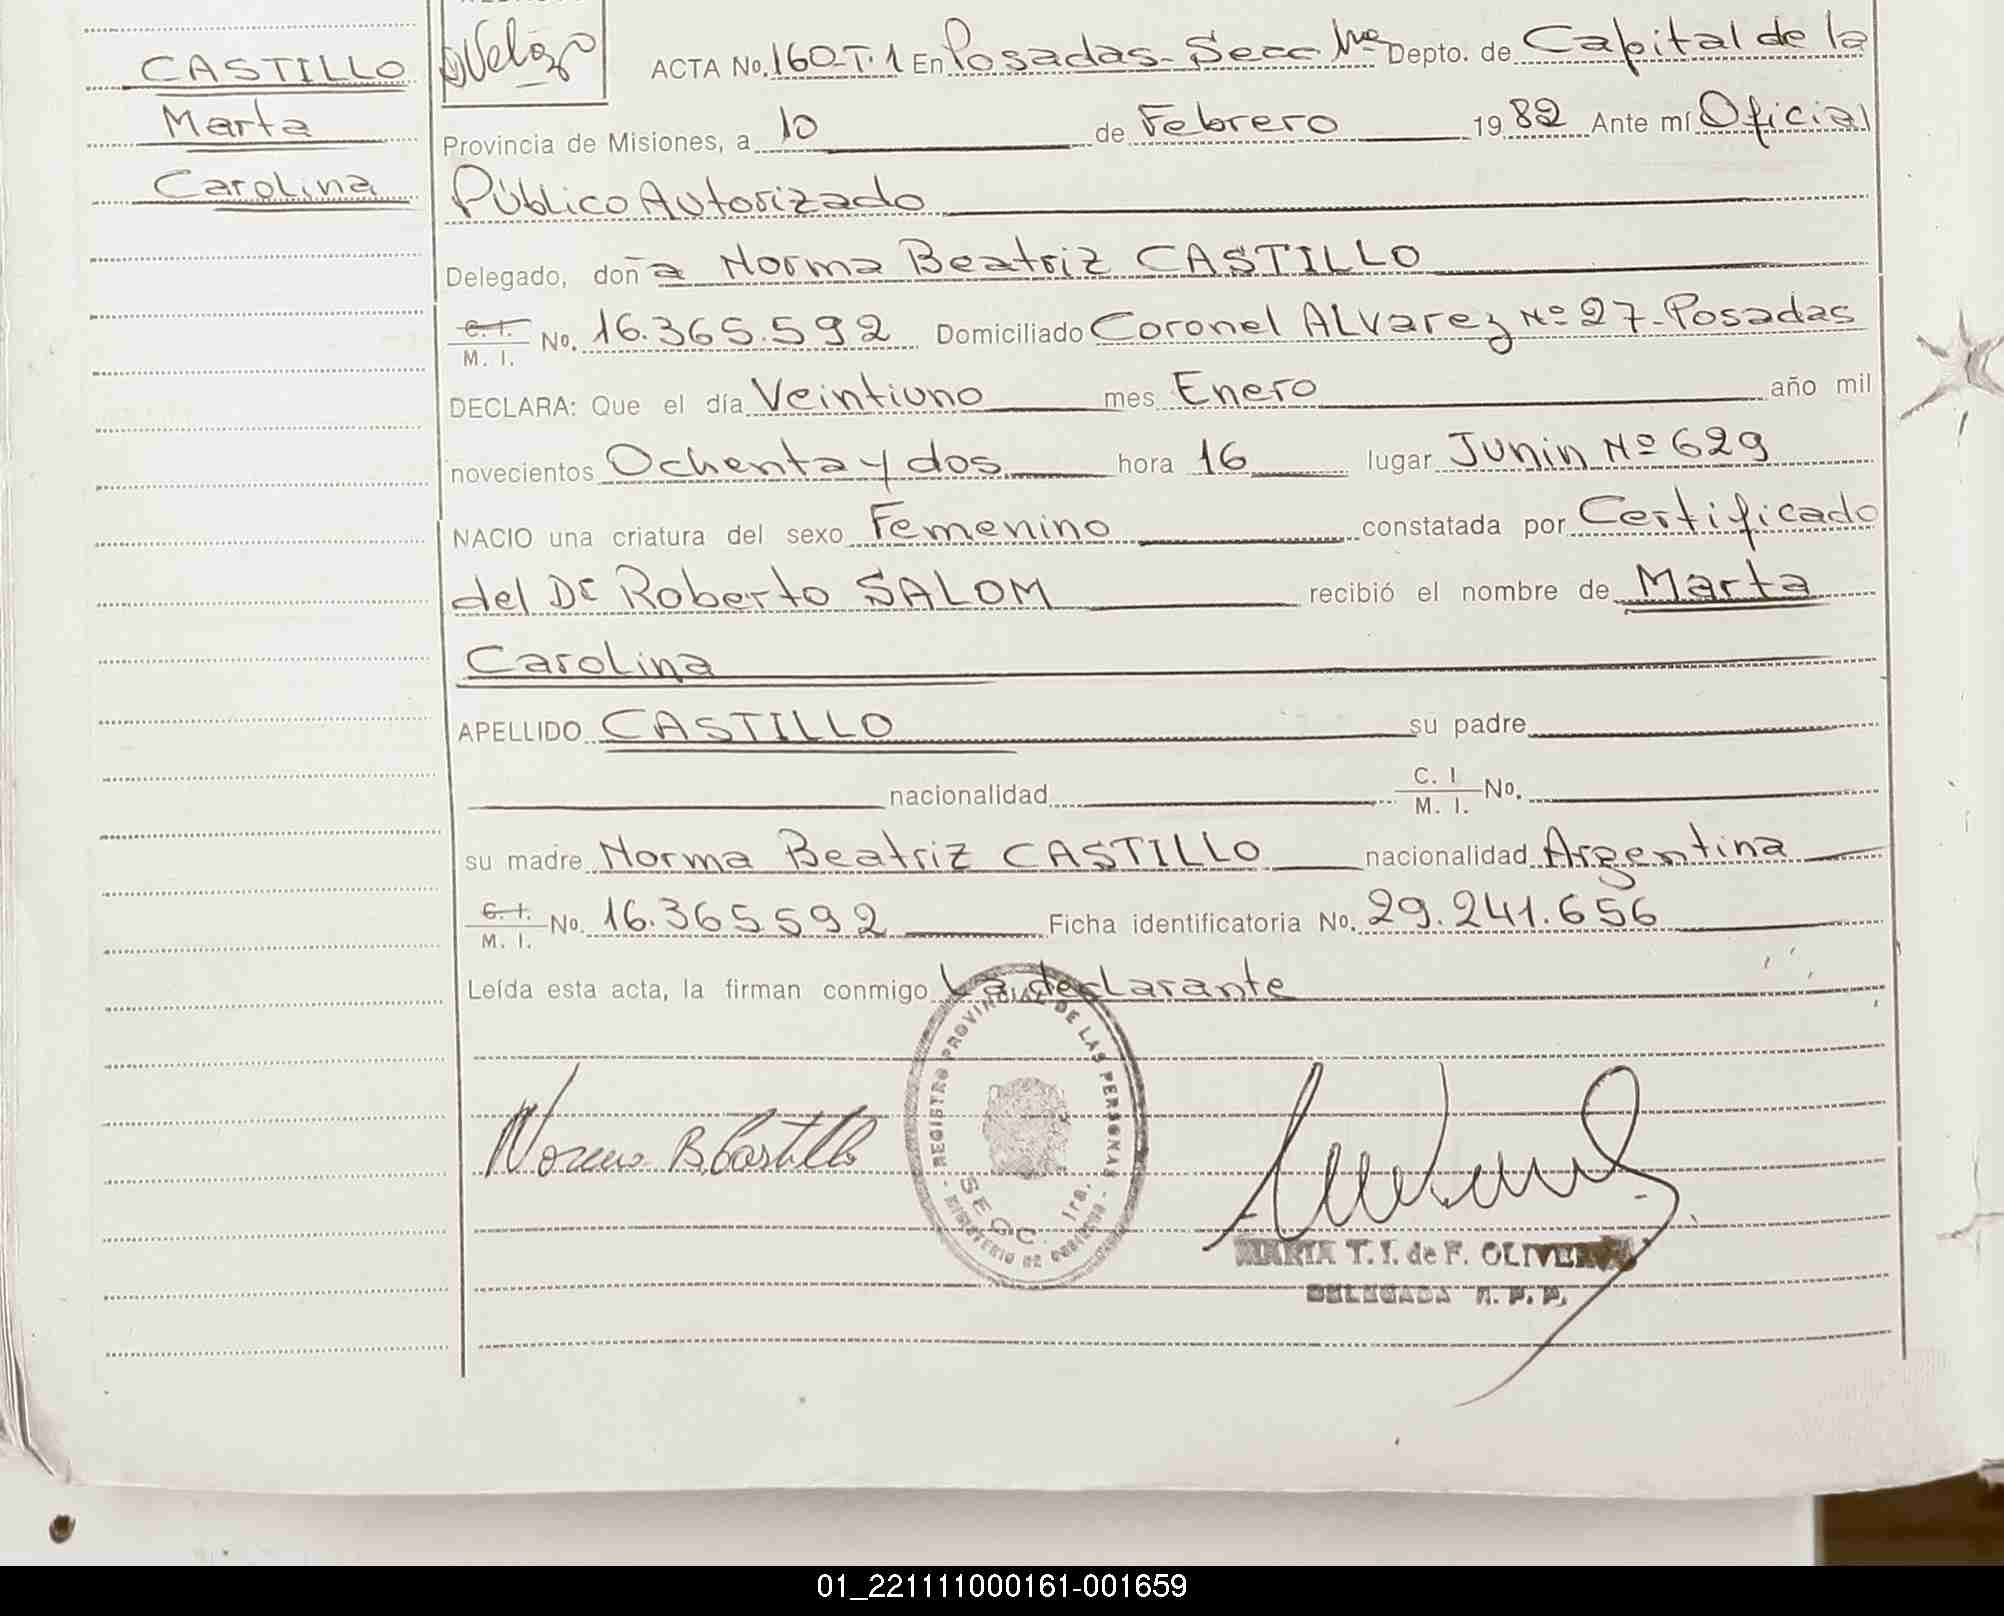 CASTILLO
Marta
Carolina
ACTA No. 160-T.1 En Posadas-Secc 1ra Depto. de Capital de la
Provincia de Misiones, a 10 de Febrero 1982 Ante mí Oficial
Público Autorizado
Delegado, doña Norma Beatriz CASTILLO
C. I. / M. I. No. 16.365.592 Domiciliado Coronel ALvarez Nº 27-Posadas
DECLARA: Que el día Veintiuno mes Enero año mil
novecientos Ochenta y dos hora 16 lugar Junin Nº 629
NACIO una criatura del sexo Femenino constatada por Certificado
del Dr Roberto SALOM recibió el nombre de Marta
Carolina
APELLIDO CASTILLO su padre
nacionalidad C. I / M. I. No.
su madre Norma Beatriz CASTILLO nacionalidad Argentina
C. I. / M. I. No. 16.365592 Ficha identificatoria No. 29.241.656
Leída esta acta, la firman conmigo La declarante
Norma B. Castillo
REGISTRO PROVINCIAL DE LAS PERSONAS
SECC. 1ra.
MINISTERIO DE GOBIERNO
MARIA T. I. de F. OLIVERA
DELEGADA R. P. P.
01_221111000161-001659